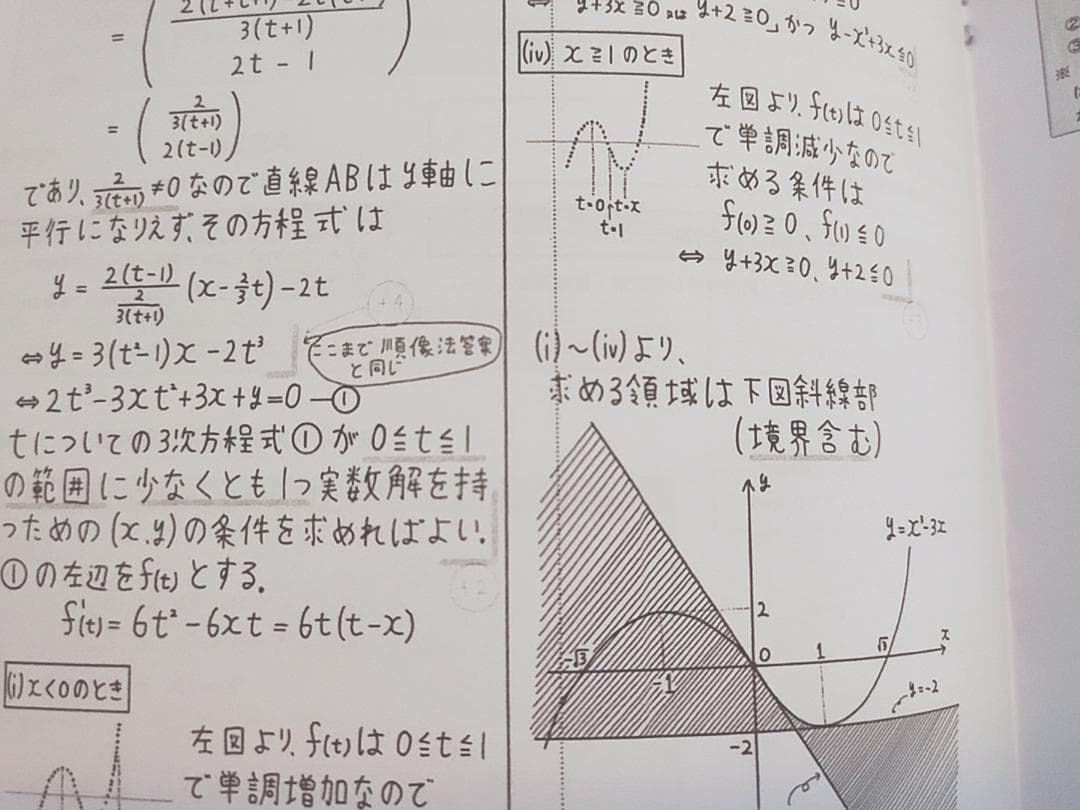 = ( 2/3(t+1) 2t - 1 )
= ( 2/3(t+1) 2(t-1) )
であり、2/3(t+1) ≠0 なので直線ABはy軸に
平行になりえず、その方程式は
y = 2(t-1)/(2/3(t+1)) (x - 2/3 t) - 2t
⇔ y = 3(t²-1)x - 2t³
ここまで順像法答案
と同じ
+4
⇔ 2t³-3xt²+3x+y=0 —①
tについての3次方程式①が 0≦t≦1
の範囲に少なくとも1つ実数解を持
つための(x,y)の条件を求めればよい.
①の左辺をf(t)とする.
+2
f'(t) = 6t² - 6xt = 6t(t-x)
(i) x<0のとき
左図より、f(t)は 0≦t≦1
で単調増加なので
⇔ y+3x≧0 又は y+2≧0」かつ y-x³+3x≦0
(iv) x≧1のとき
左図より、f(t)は0≦t≦1
で単調減少なので
求める条件は
f(0)≧0、f(1)≦0
⇔ y+3x≧0、y+2≦0
t=0 t=x
t=1
(i)～(iv)より、
求める領域は下図斜線部
(境界含む)
y
y=x³-3x
2
-√3
-1
0
1
√3
x
y=-2
-2
②
③
※